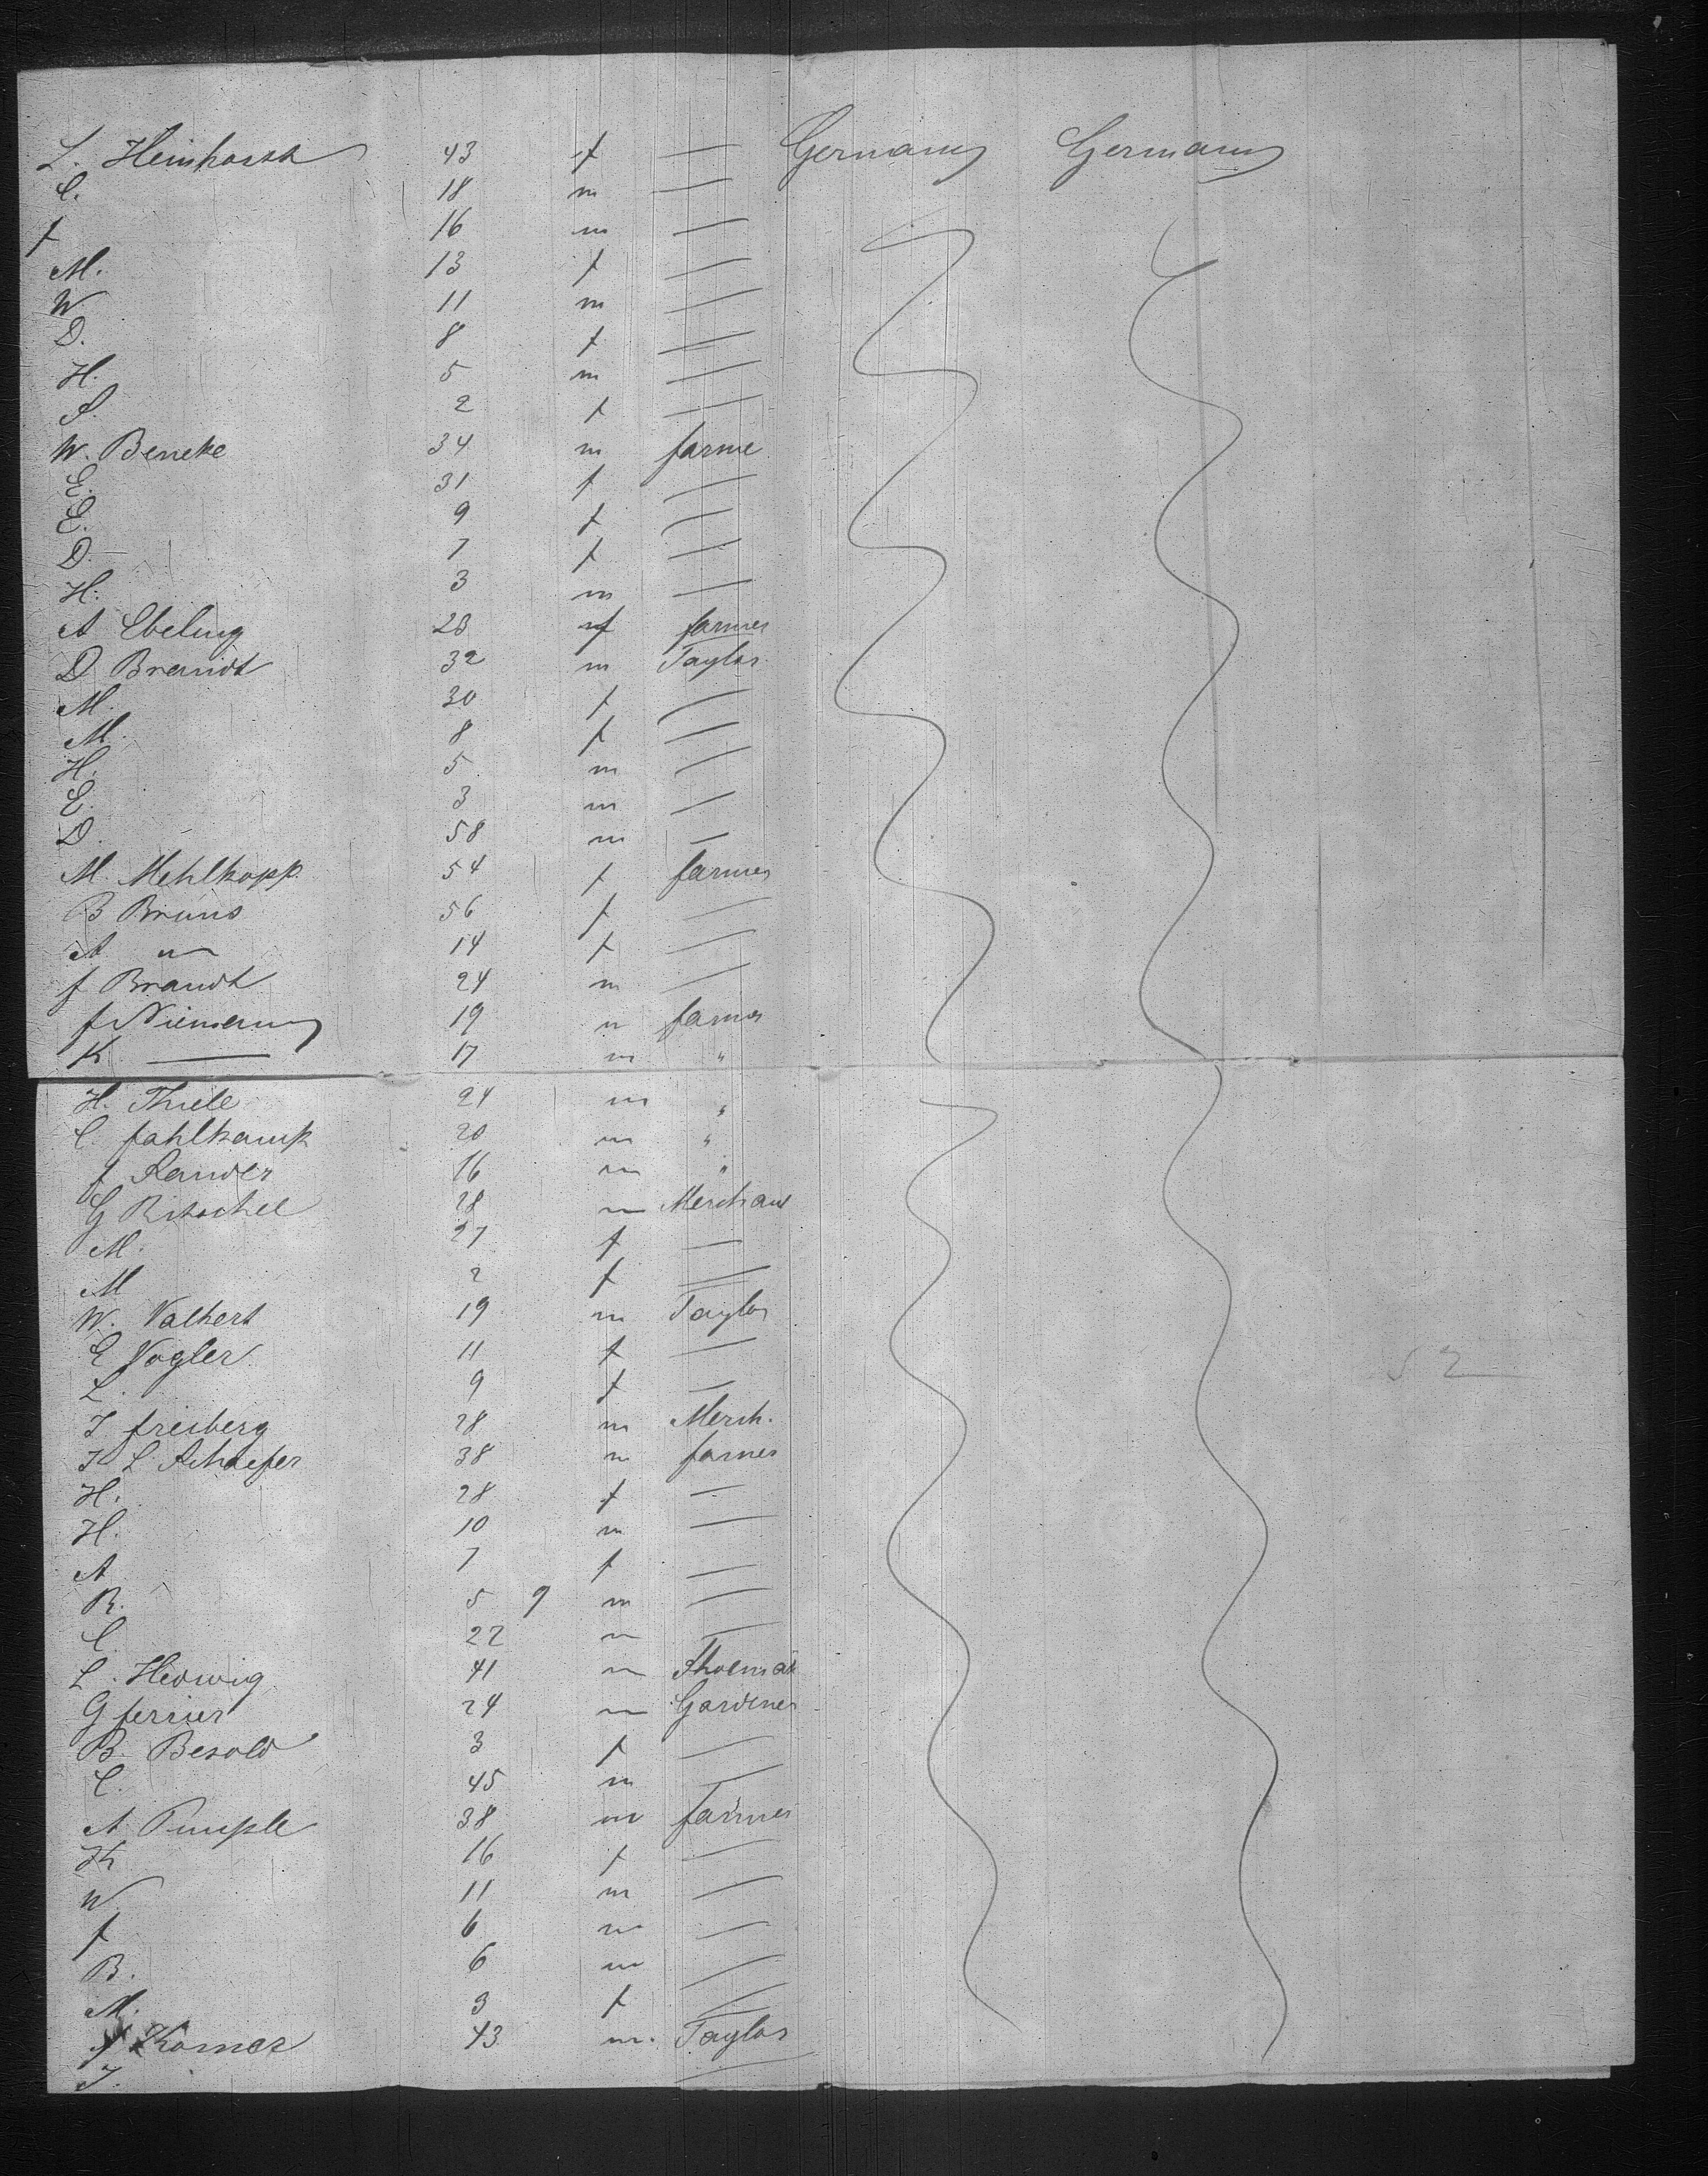 L. Heinhorst 43 f — Germany Germany
C. 18 m —
f 16 m —
M. 13 f —
W. 11 m —
D. 8 f —
H. 5 m —
S. 2 f —
W. Beneke 34 m farme
E. 31 f —
E. 9 f —
D. — 7 f —
H. 3 m —
A Ebeling 23 f farmer
D Brandt 32 m Taylor
M. 30 f —
M. 8 f —
H. 5 m —
E. 3 m —
D. 58 m —
M. Mehlkopp. 54 f farmer
B Bruns 56 f —
A " 14 f —
f Brandt 24 m —
f Niemann 19 m farmer
K — 17 m "
H. Thiele 24 m "
C. fahlkamp 20 m "
f Sander 16 m "
G Ritschel 28 m Merchant
M. 27 f —
M 2 f —
W. Valhert 19 m Taylor
E Vogler 11 f —
L. 9 f — 52
J freiberg 28 m Merch.
J L Schaefer 38 m farmer
H. 28 f —
H. 10 m —
A 7 f —
R. 5 9 m —
C. 22 m —
L. Hedwig 41 m
G ferrier 24 m Gardener
B. Besold 3 f —
C. 45 m —
A Pimple 38 m farmer
K 16 f —
W 11 m —
f 6 m —
B. 6 m —
M. 3 f —
f Korner 43 m. Taylor
J. —